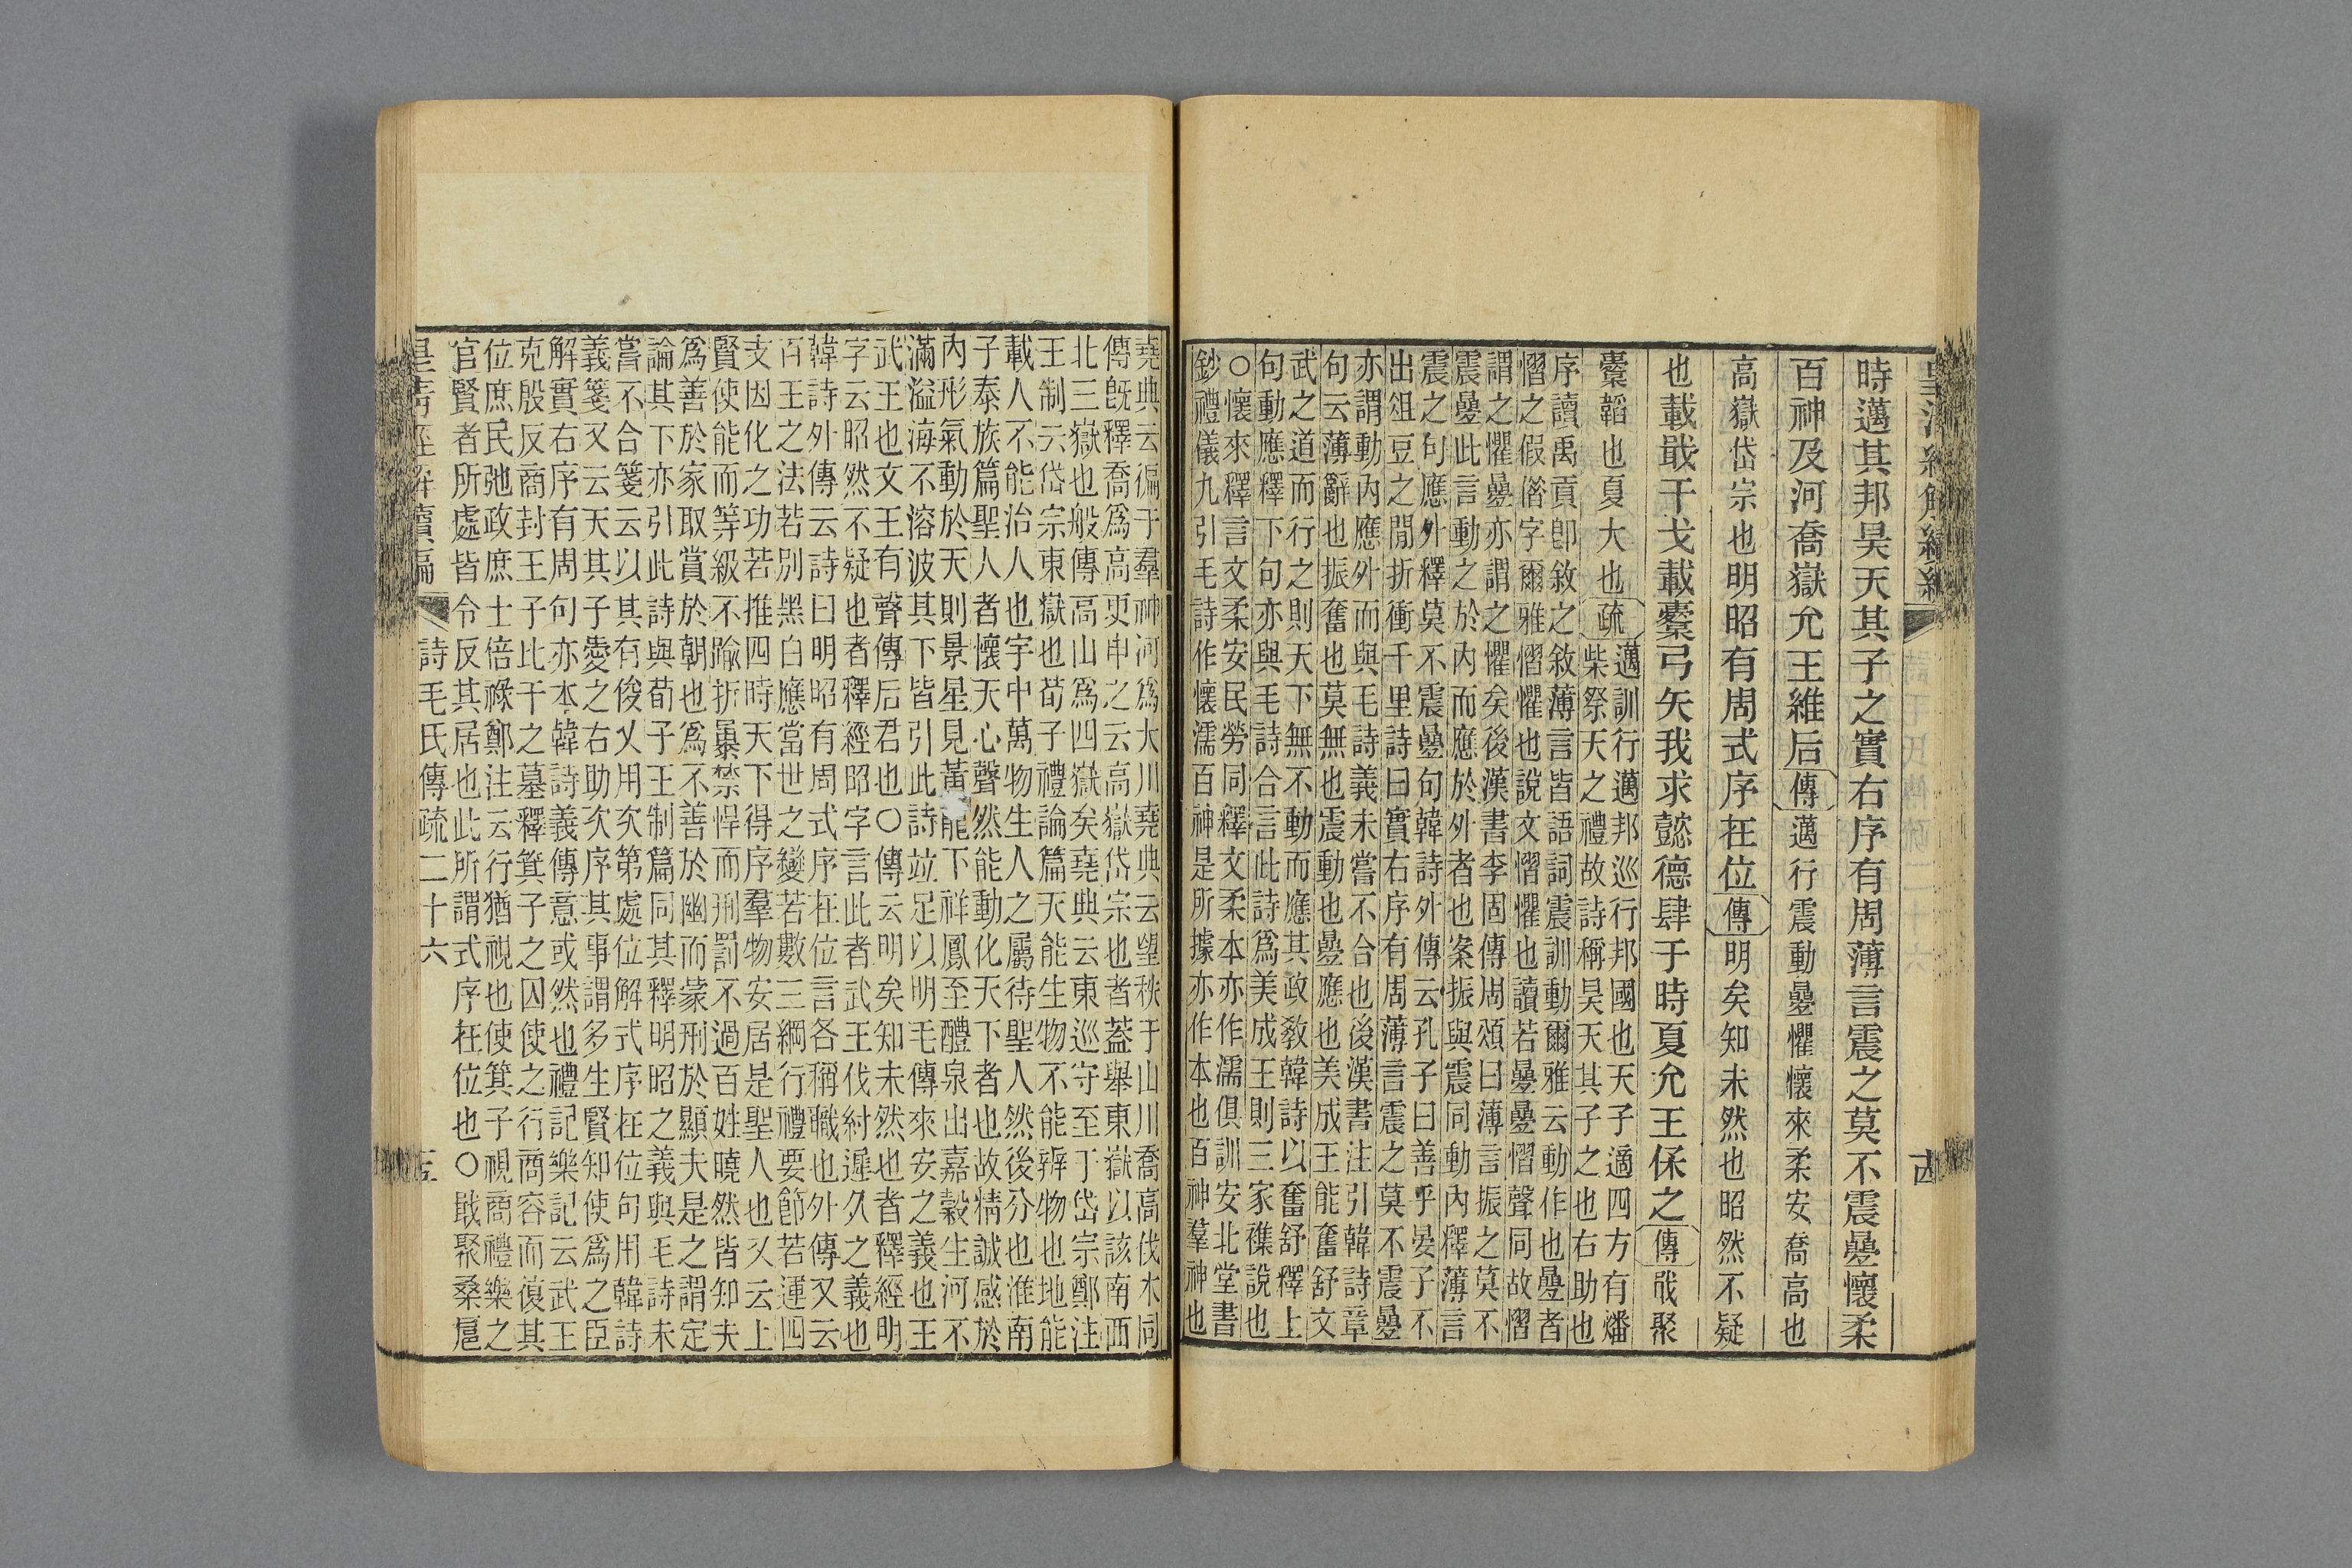 時邁其邦昊天其子之實右序有周薄言震之莫不震疊懷柔
百神及河喬嶽允王維后傳邁行震動疊懼懷來柔安喬高也
高嶽岱宗也明昭有周式序在位傳明矣知未然也昭然不疑
也載戢干戈載櫜弓矢我求懿德肆于時夏允王保之傳戢聚
櫜韜也夏大也疏邁訓行邁邦巡行邦國也天子適四方有燔
柴祭天之禮故詩稱昊天其子之也右助也
序讀禹貢卽敘之敘薄言皆語詞震訓動爾雅云動作也疊者
慴之假俗字爾雅慴懼也說文慴懼也讀若疊疊慴聲同故慴
謂之懼疊亦謂之懼矣後漢書李固傳周頌曰薄言振之莫不
震疊此言動之於內而應於外者也案振與震同動內釋薄言
震之句應外釋莫不震疊句韓詩外傳云孔子曰善乎晏子不
出俎豆之閒折衝千里詩曰實右序有周薄言震之莫不震疊
亦謂動內應外而與毛詩義未嘗不合也後漢書注引韓詩章
句云薄辭也振奮也莫無也震動也疊應也美成王能奮舒文
武之道而行之則天下無不動而應其政教韓詩以奮舒釋上
句動應釋下句亦與毛詩合言此詩爲美成王則三家襍說也
○懷來釋言文柔安民勞同釋文柔本亦作濡俱訓安北堂書
鈔禮儀九引毛詩作懷濡百神是所據亦作本也百神羣神也
堯典云徧于羣神河爲大川堯典云望秩于山川喬高伐木同
傳旣釋喬爲高更申之云高嶽岱宗也者蓋舉東嶽以該南西
北三嶽也般傳高山爲四嶽矣堯典云東巡守至于岱宗鄭注
王制云岱宗東嶽也荀子禮論篇天能生物不能辨物也地能
載人不能治人也宇中萬物生人之屬待聖人然後分也淮南
子泰族篇聖人者懷天心聲然能動化天下者也故精誠感於
內形氣動於天則景星見黃龍下祥鳳至醴泉出嘉穀生河不
滿溢海不溶波其下皆引此詩竝足以明毛傳來安之義也王
武王也文王有聲傳后君也○傳云明矣知未然也者釋經明
字云昭然不疑也者釋經昭字言此者武王伐紂遲久之義也
韓詩外傳云詩曰明昭有周式序在位言各稱職也外傳又云
百王之法若別黑白應當世之變若數三綱行禮要節若運四
支因化之功若推四時天下得序羣物安居是聖人也又云上
賢使能而等級不踰折暴禁悍而刑罰不過百姓曉然皆知夫
爲善於家取賞於朝也爲不善於幽而蒙刑於顯夫是之謂定
論其下亦引此詩與荀子王制篇同其釋明昭之義與毛詩未
嘗不合箋云以其有俊乂用次第處位解式序在位句用韓詩
義箋又云天其子愛之右助次序其事謂多生賢知使爲之臣
解實右序有周句亦本韓詩義傳意或然也禮記樂記云武王
克殷反商封王子比干之墓釋箕子之囚使之行商容而復其
位庶民弛政庶士倍祿鄭注云行猶視也使箕子視商禮樂之
官賢者所處皆令反其居也此所謂式序在位也○戢聚桑扈
詩毛氏傳疏二十六